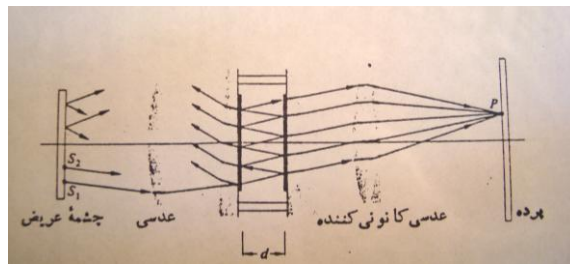 P
S₂
S₁
چشمهٔ عریض
عدسی
عدسی کانونی کننده
پرده
d